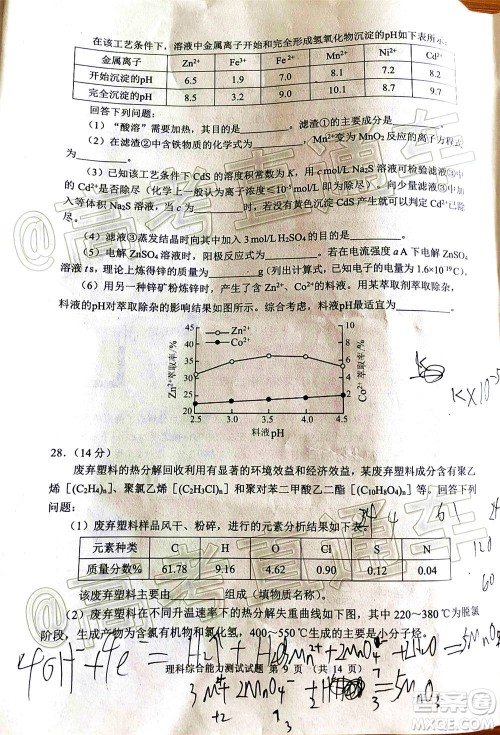 在该工艺条件下，溶液中金属离子开始和完全形成氢氧化物沉淀的pH如下表所示:
金属离子 Zn²⁺ Fe³⁺ Fe²⁺ Mn²⁺ Ni²⁺ Cd²⁺
开始沉淀的pH 6.5 1.9 7.0 8.1 7.2 8.2
完全沉淀的pH 8.5 3.2 9.0 10.1 8.7 9.7
回答下列问题：
（1）“酸溶”需要加热，其目的是______。滤渣①的主要成分是______。
（2）在滤渣②中含铁物质的化学式为______，Mn²⁺变为MnO₂反应的离子方程式
为______。
（3）已知该工艺条件下 CdS 的溶度积常数为 K，用 c mol/L Na₂S 溶液可检验滤液③中
的 Cd²⁺是否除尽（化学上一般认为离子浓度≤10⁻⁵ mol/L 即为除尽）。向少量滤液③中
入等体积 Na₂S 溶液，当 c 为______时，若没有黄色沉淀 CdS 产生就可以判定 Cd²⁺已除
尽。
（4）滤液③蒸发结晶时向其中加入 3 mol/L H₂SO₄ 的目的是______。
（5）电解 ZnSO₄ 溶液时，阳极反应式为______。若在电流强度 a A 下电解 ZnSO₄
溶液 t s，理论上炼得锌的质量为______g（列出计算式，已知电子的电量为 1.6×10⁻¹⁹ C）。
（6）用另一种锌矿粉炼锌时，产生了含 Zn²⁺、Co²⁺的料液。用某萃取剂萃取除杂，
料液的pH对萃取除杂的影响结果如图所示。综合考虑，料液pH最适宜为______。
Zn²⁺萃取率/%
50
40
30
20
Zn²⁺
Co²⁺
10
8
6
4
2
0
Co²⁺萃取率/%
2.5 3.0 3.5 4.0 4.5
料液pH
K×10⁻⁵
28.（14 分）
废弃塑料的热分解回收利用有显著的环境效益和经济效益，某废弃塑料成分含有聚乙
烯［(C₂H₄)ₙ］、聚氯乙烯［(C₂H₃Cl)ₙ］和聚对苯二甲酸乙二酯［(C₁₀H₈O₄)ₙ］等。回答下列
问题：
（1）废弃塑料样品风干、粉碎，进行的元素分析结果如下表。
元素种类 C H O Cl S N
质量分数% 61.78 9.16 4.62 0.90 0.12 0.04
该废弃塑料主要由______组成（填物质名称）。
120
60
（2）废弃塑料在不同升温速率下的热分解失重曲线如下图，其中 220～380℃为脱氯
阶段，生成产物为含氯有机物和氯化氢，400～550℃生成产物主要是小分子烃。
理科综合能力测试试题 第 9 页（共 14 页）
高考直通车
答案圈